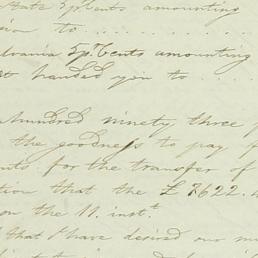 State 5 p. Cents amounting
to
5 p. Cents amounting
handed you to
hundred ninety three p
the goodness to pay f
for the transfer of
tion that the £ 7622.
on the 11. inst.
that I have desired our